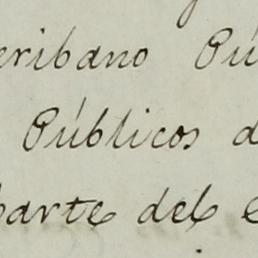 eribano Pú
Públicos d
parte del e